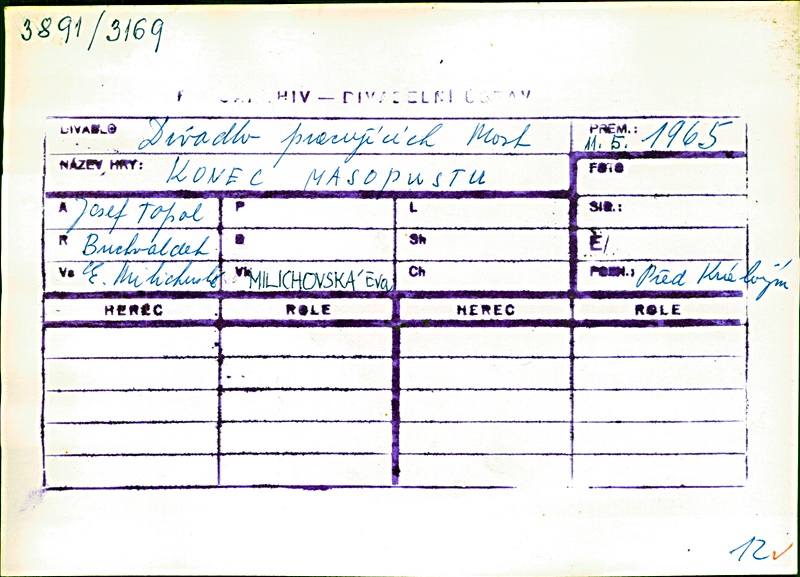 3891/3169
HIV — DIVADELNÍ ÚSTAV
DIVADLO Divadlo pracujících Most PREM.: 11. 5. 1965
NÁZEV HRY: KONEC MASOPUSTU FOTO
A Josef Topol P L SIG.:
R Buchváldek B Sh Č/
Vs E. Milichovská Vk MILICHOVSKÁ Eva Ch POZN.: Před Královým
HEREC ROLE HEREC ROLE
12